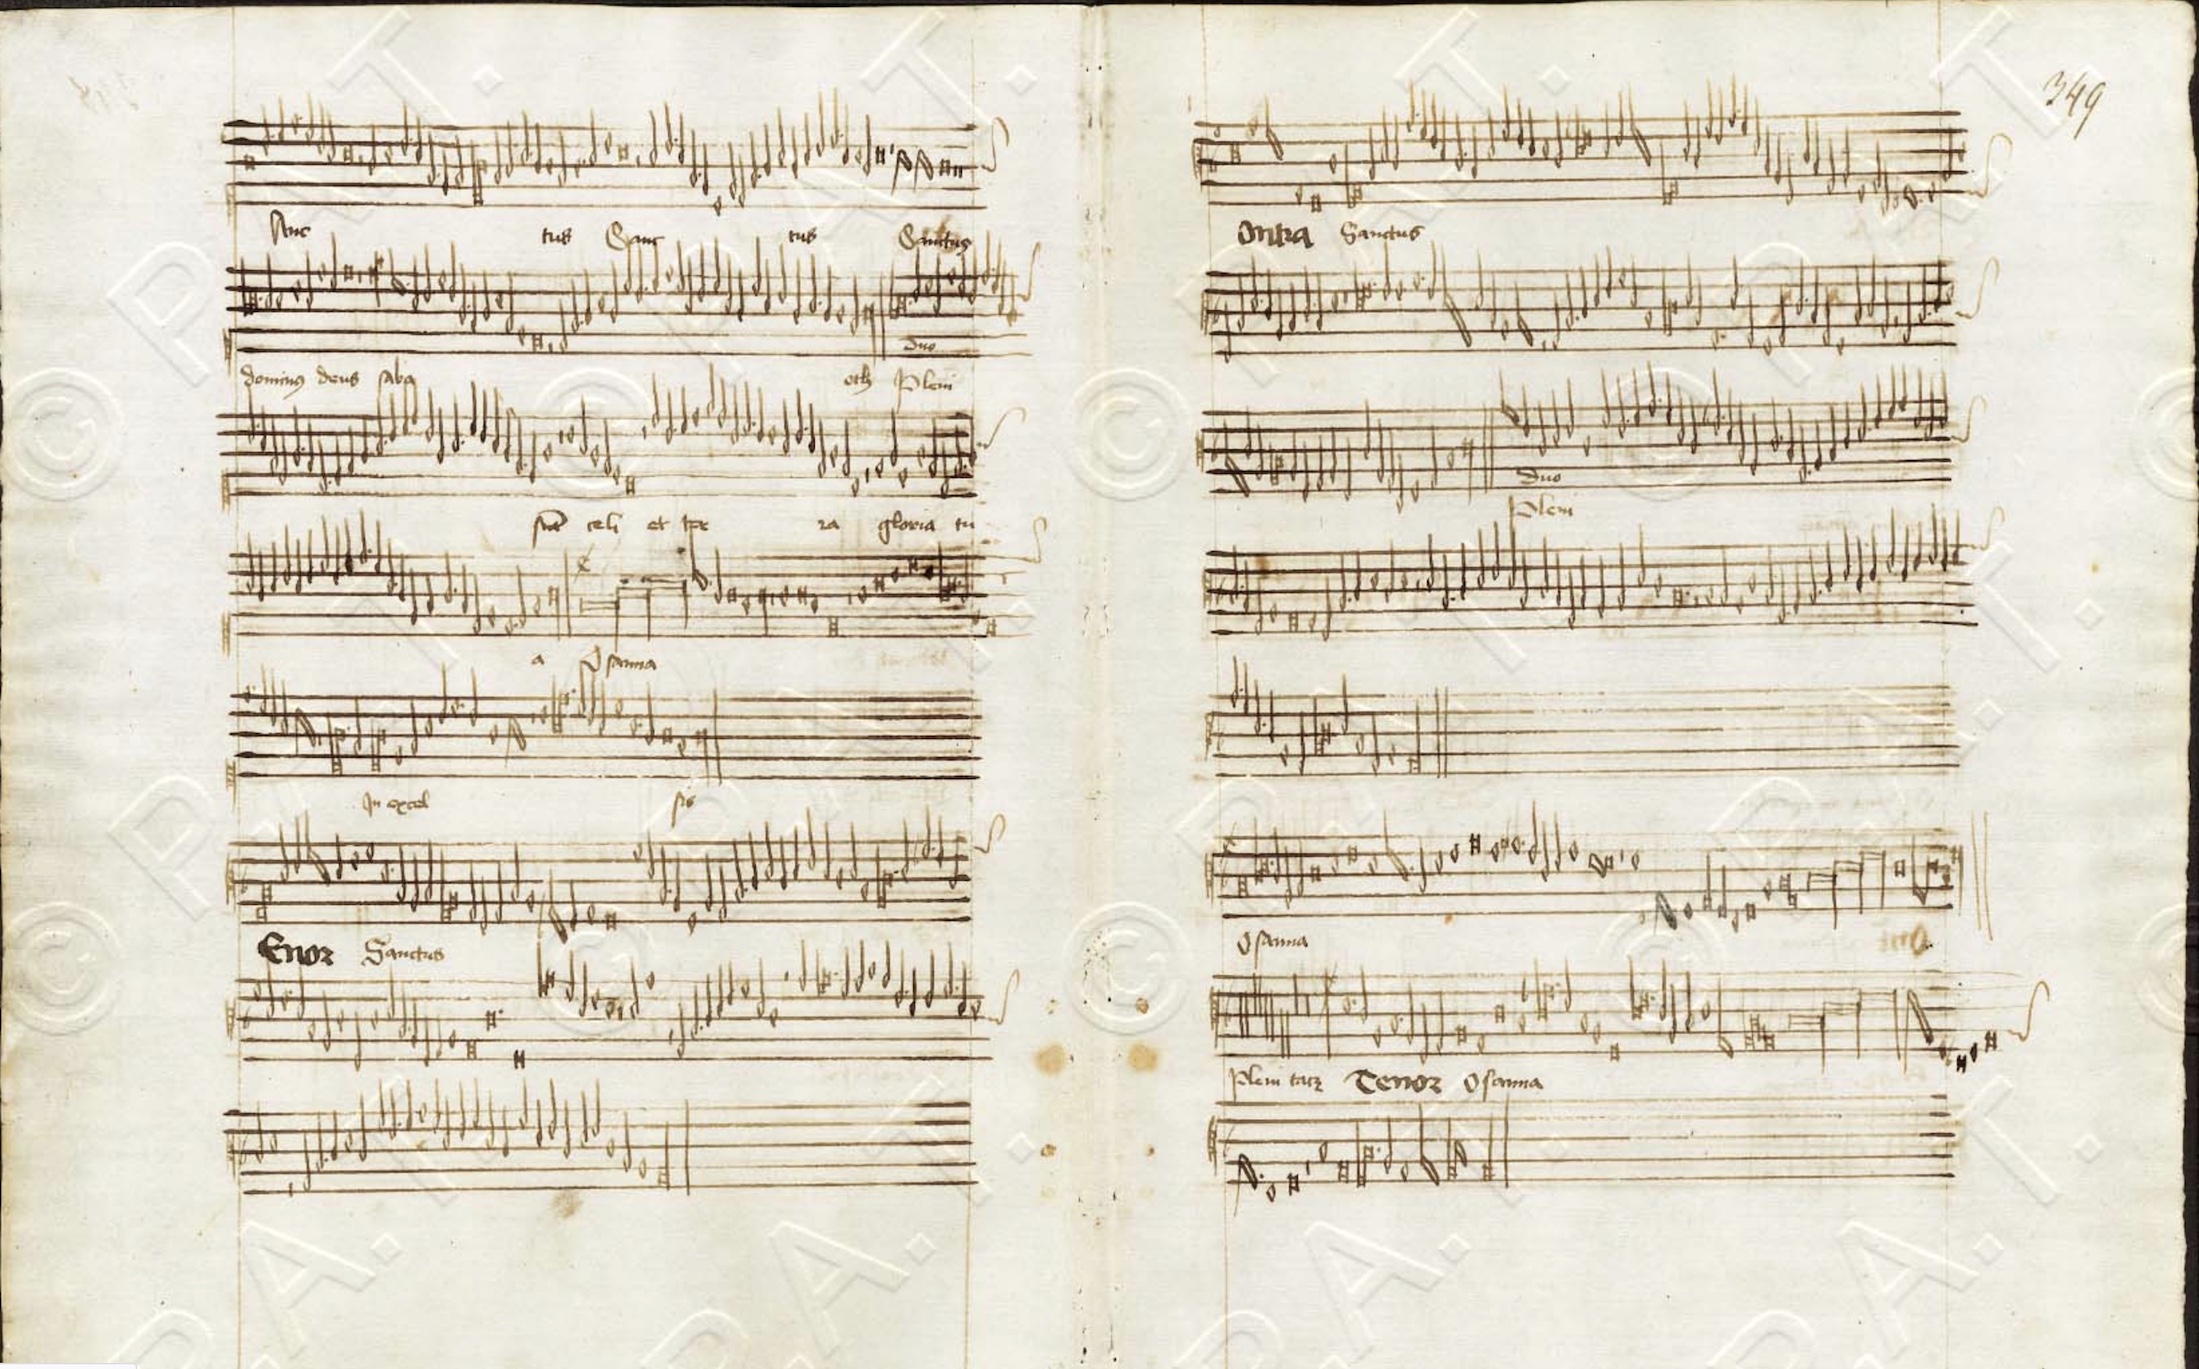 349
Anc tus Sanc tus Sanctus
duo
dominus deus saba oth Pleni
sunt celi et ter ra gloria tu
a Osanna
In excel sis
Enor Sanctus
Ontra Sanctus
duo
Pleni
Osanna
Pleni tacet Tenor Osanna